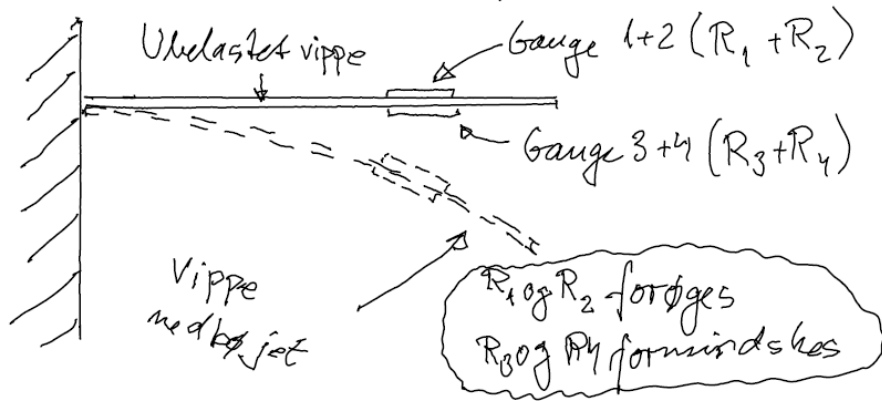 Ubelastet vippe
Gauge 1+2 (R₁ + R₂)
Gauge 3+4 (R₃+R₄)
Vippe
nedbøjet
R₁ og R₂ forøges
R₃ og R4 formindskes